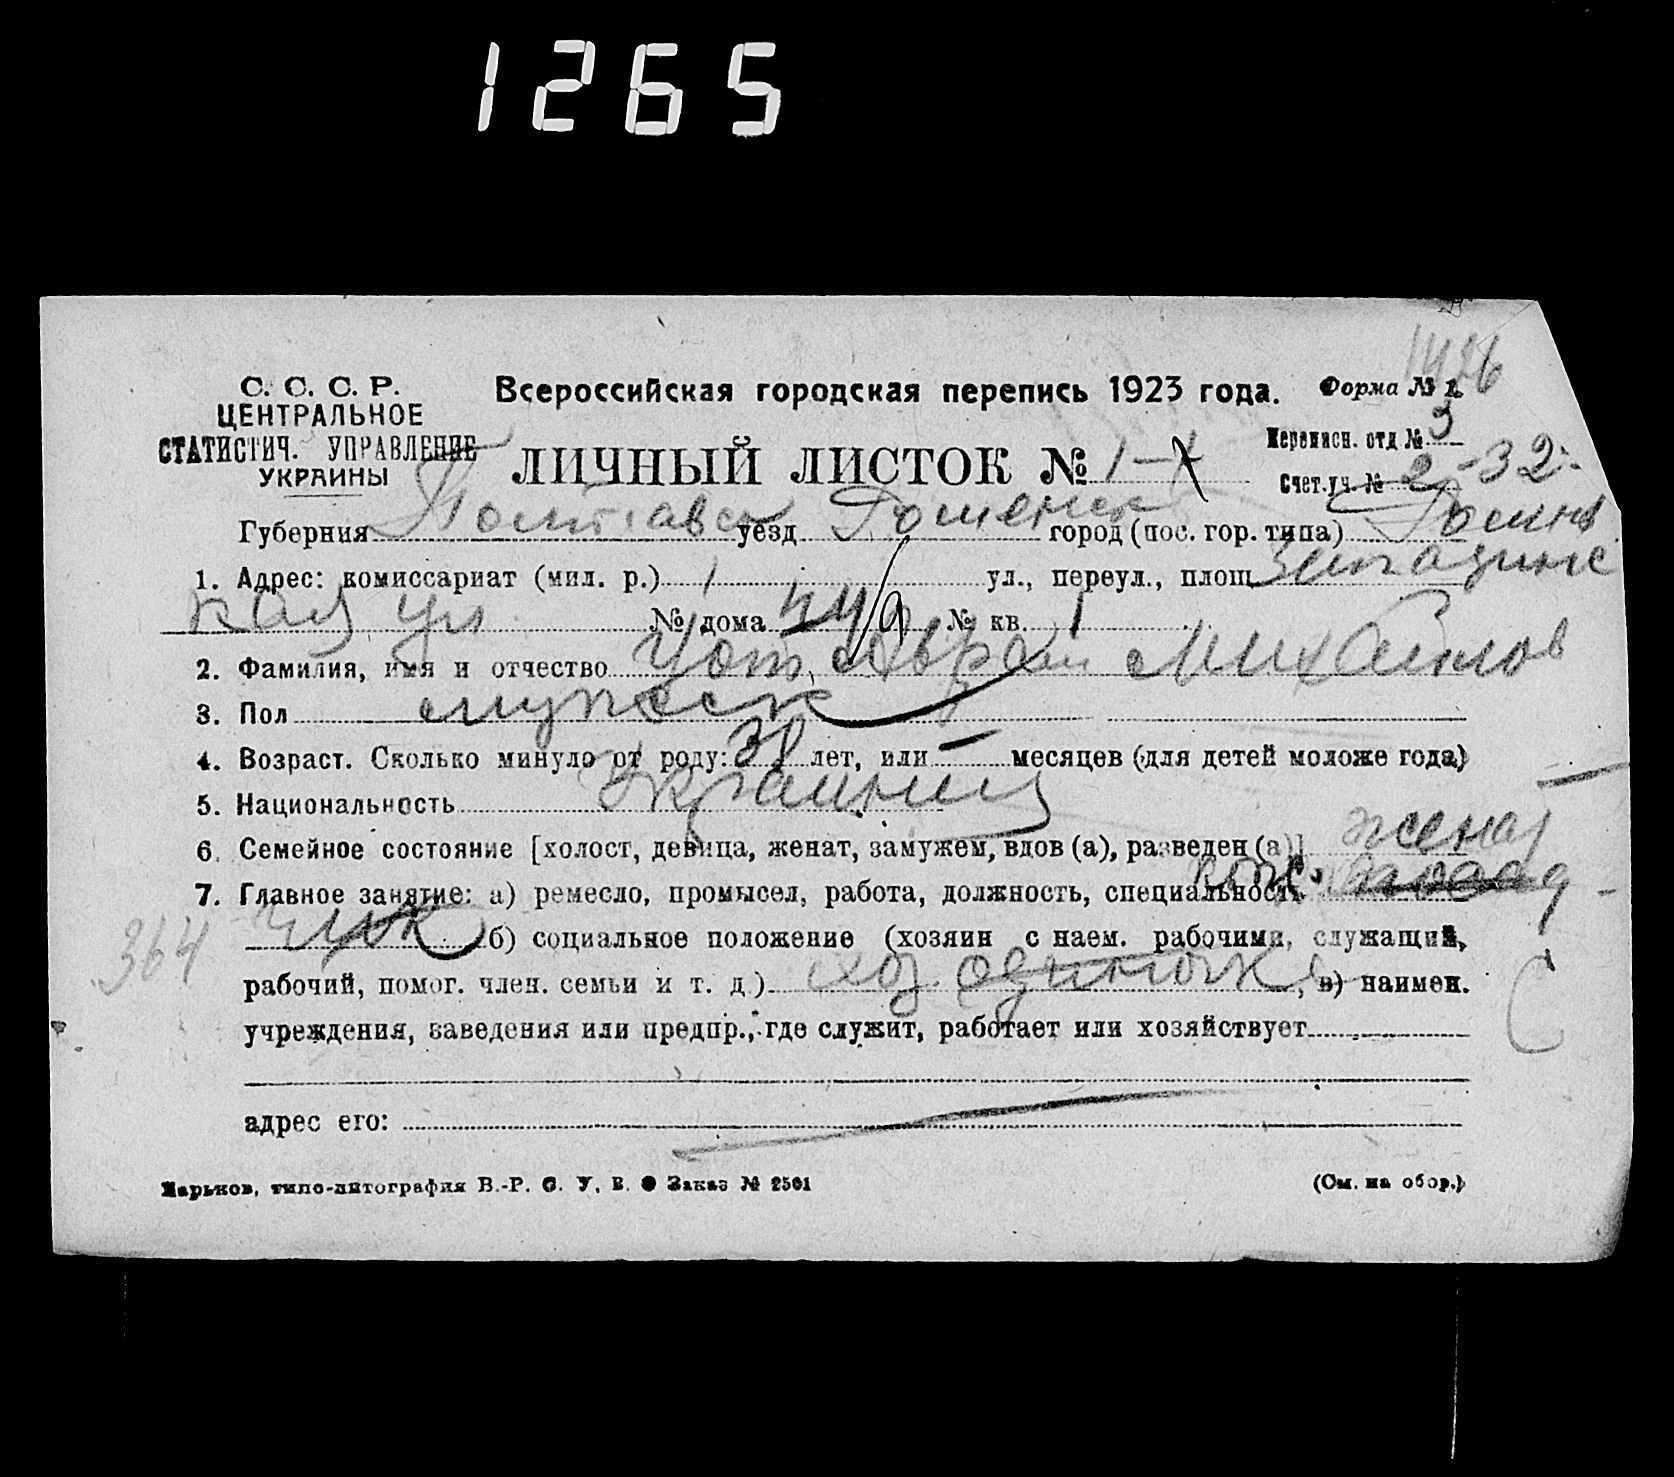 1265
1426
С. С. С. Р.
ЦЕНТРАЛЬНОЕ
СТАТИСТИЧ. УПРАВЛЕНИЕ
УКРАИНЫ
Всероссийская городская перепись 1923 года.
Форма № 1.
ЛИЧНЫЙ ЛИСТОК № 1-
Переписн. отд № 3
Счет.уч. № 2-32
Губерния Полтавск уезд Роменск город (пос. гор. типа) Ромны
1. Адрес: комиссариат (мил. р.) 1 ул., переул., площ.
кая ул № дома № кв. 1
2. Фамилия, имя и отчество Михайлов
3. Пол мужеск
4. Возраст. Сколько минуло от роду: 38 лет, или — месяцев (для детей моложе года)
5. Национальность Украинец
6. Семейное состояние [холост, девица, женат, замужем, вдов (а), разведен (а)] женат
7. Главное занятие: а) ремесло, промысел, работа, должность, специальность
364
б) социальное положение (хозяин с наем. рабочими, служащий,
рабочий, помог. член. семьи и т. д.) хоз. одиночка, в) наимен.
учреждения, заведения или предпр., где служит, работает или хозяйствует
адрес его:
Харьков, типо-литография В.-Р. С. У. В. Заказ № 2501
(См. на обор.)